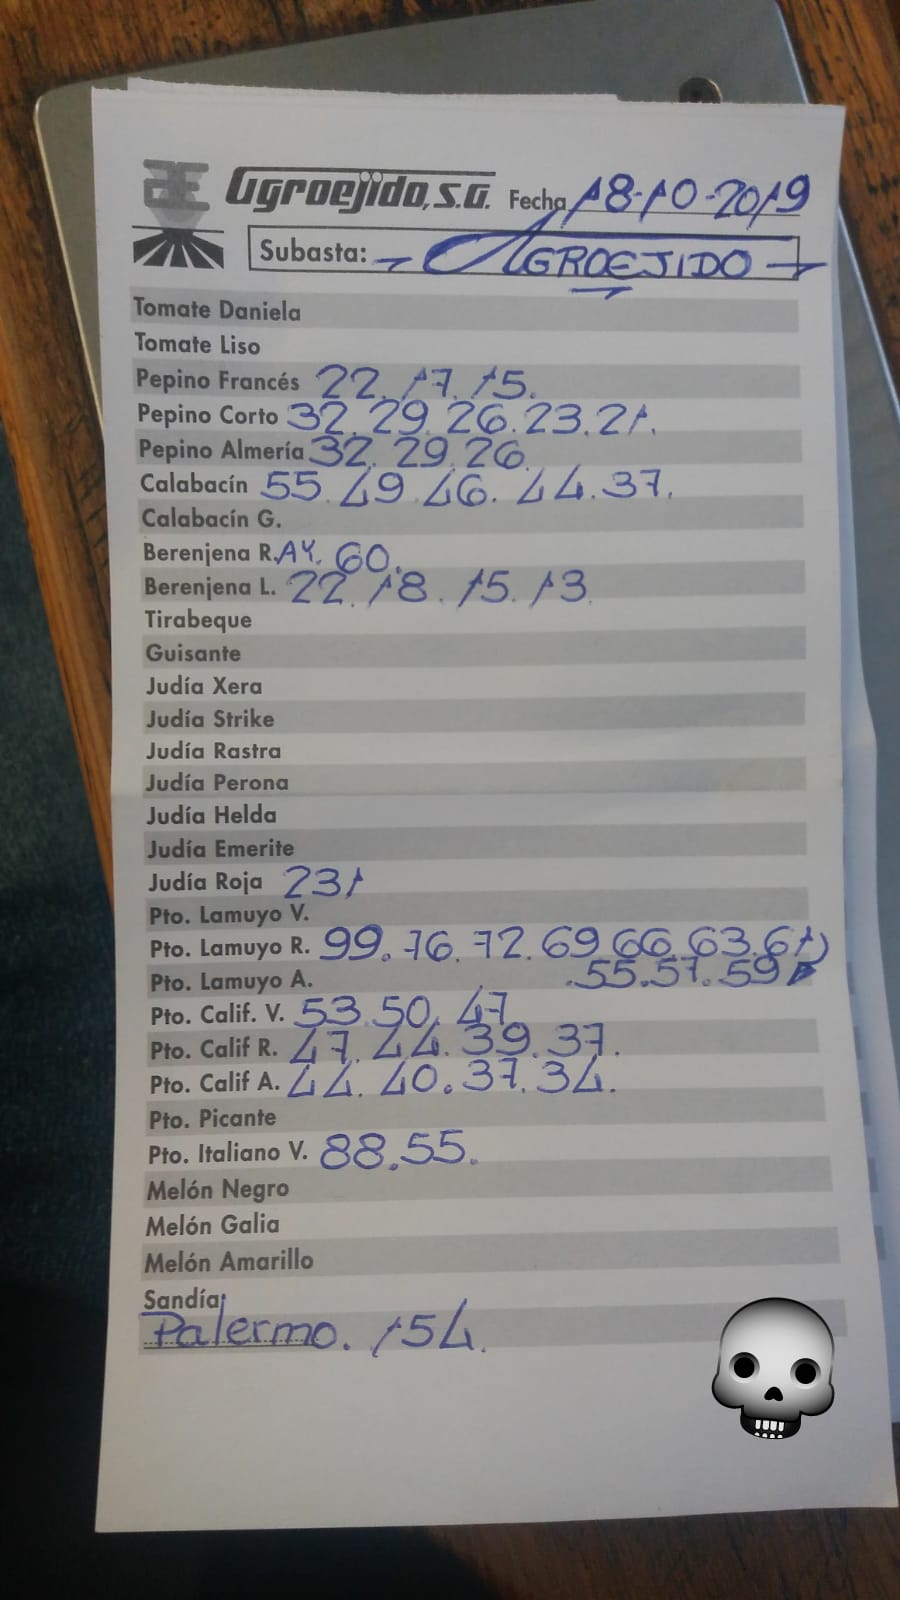 Agroejido, S.G. Fecha 18-10-2019
Subasta: - AGROEJIDO -
Tomate Daniela
Tomate Liso
Pepino Francés 22. 17. 15.
Pepino Corto 32. 29. 26. 23. 21.
Pepino Almería 32. 29. 26.
Calabacín 55. 49. 46. 44. 37.
Calabacín G.
Berenjena R.AY. 60.
Berenjena L. 22. 18. 15. 13.
Tirabeque
Guisante
Judía Xera
Judía Strike
Judía Rastra
Judía Perona
Judía Helda
Judía Emerite
Judía Roja 231
Pto. Lamuyo V.
Pto. Lamuyo R. 99. 76. 72. 69. 66. 63. 61)
Pto. Lamuyo A. .55. 57. 59
Pto. Calif. V. 53. 50. 47
Pto. Calif R. 47. 44. 39. 37.
Pto. Calif A. 44. 40. 37. 34.
Pto. Picante
Pto. Italiano V. 88. 55.
Melón Negro
Melón Galia
Melón Amarillo
Sandía
Palermo. 154.